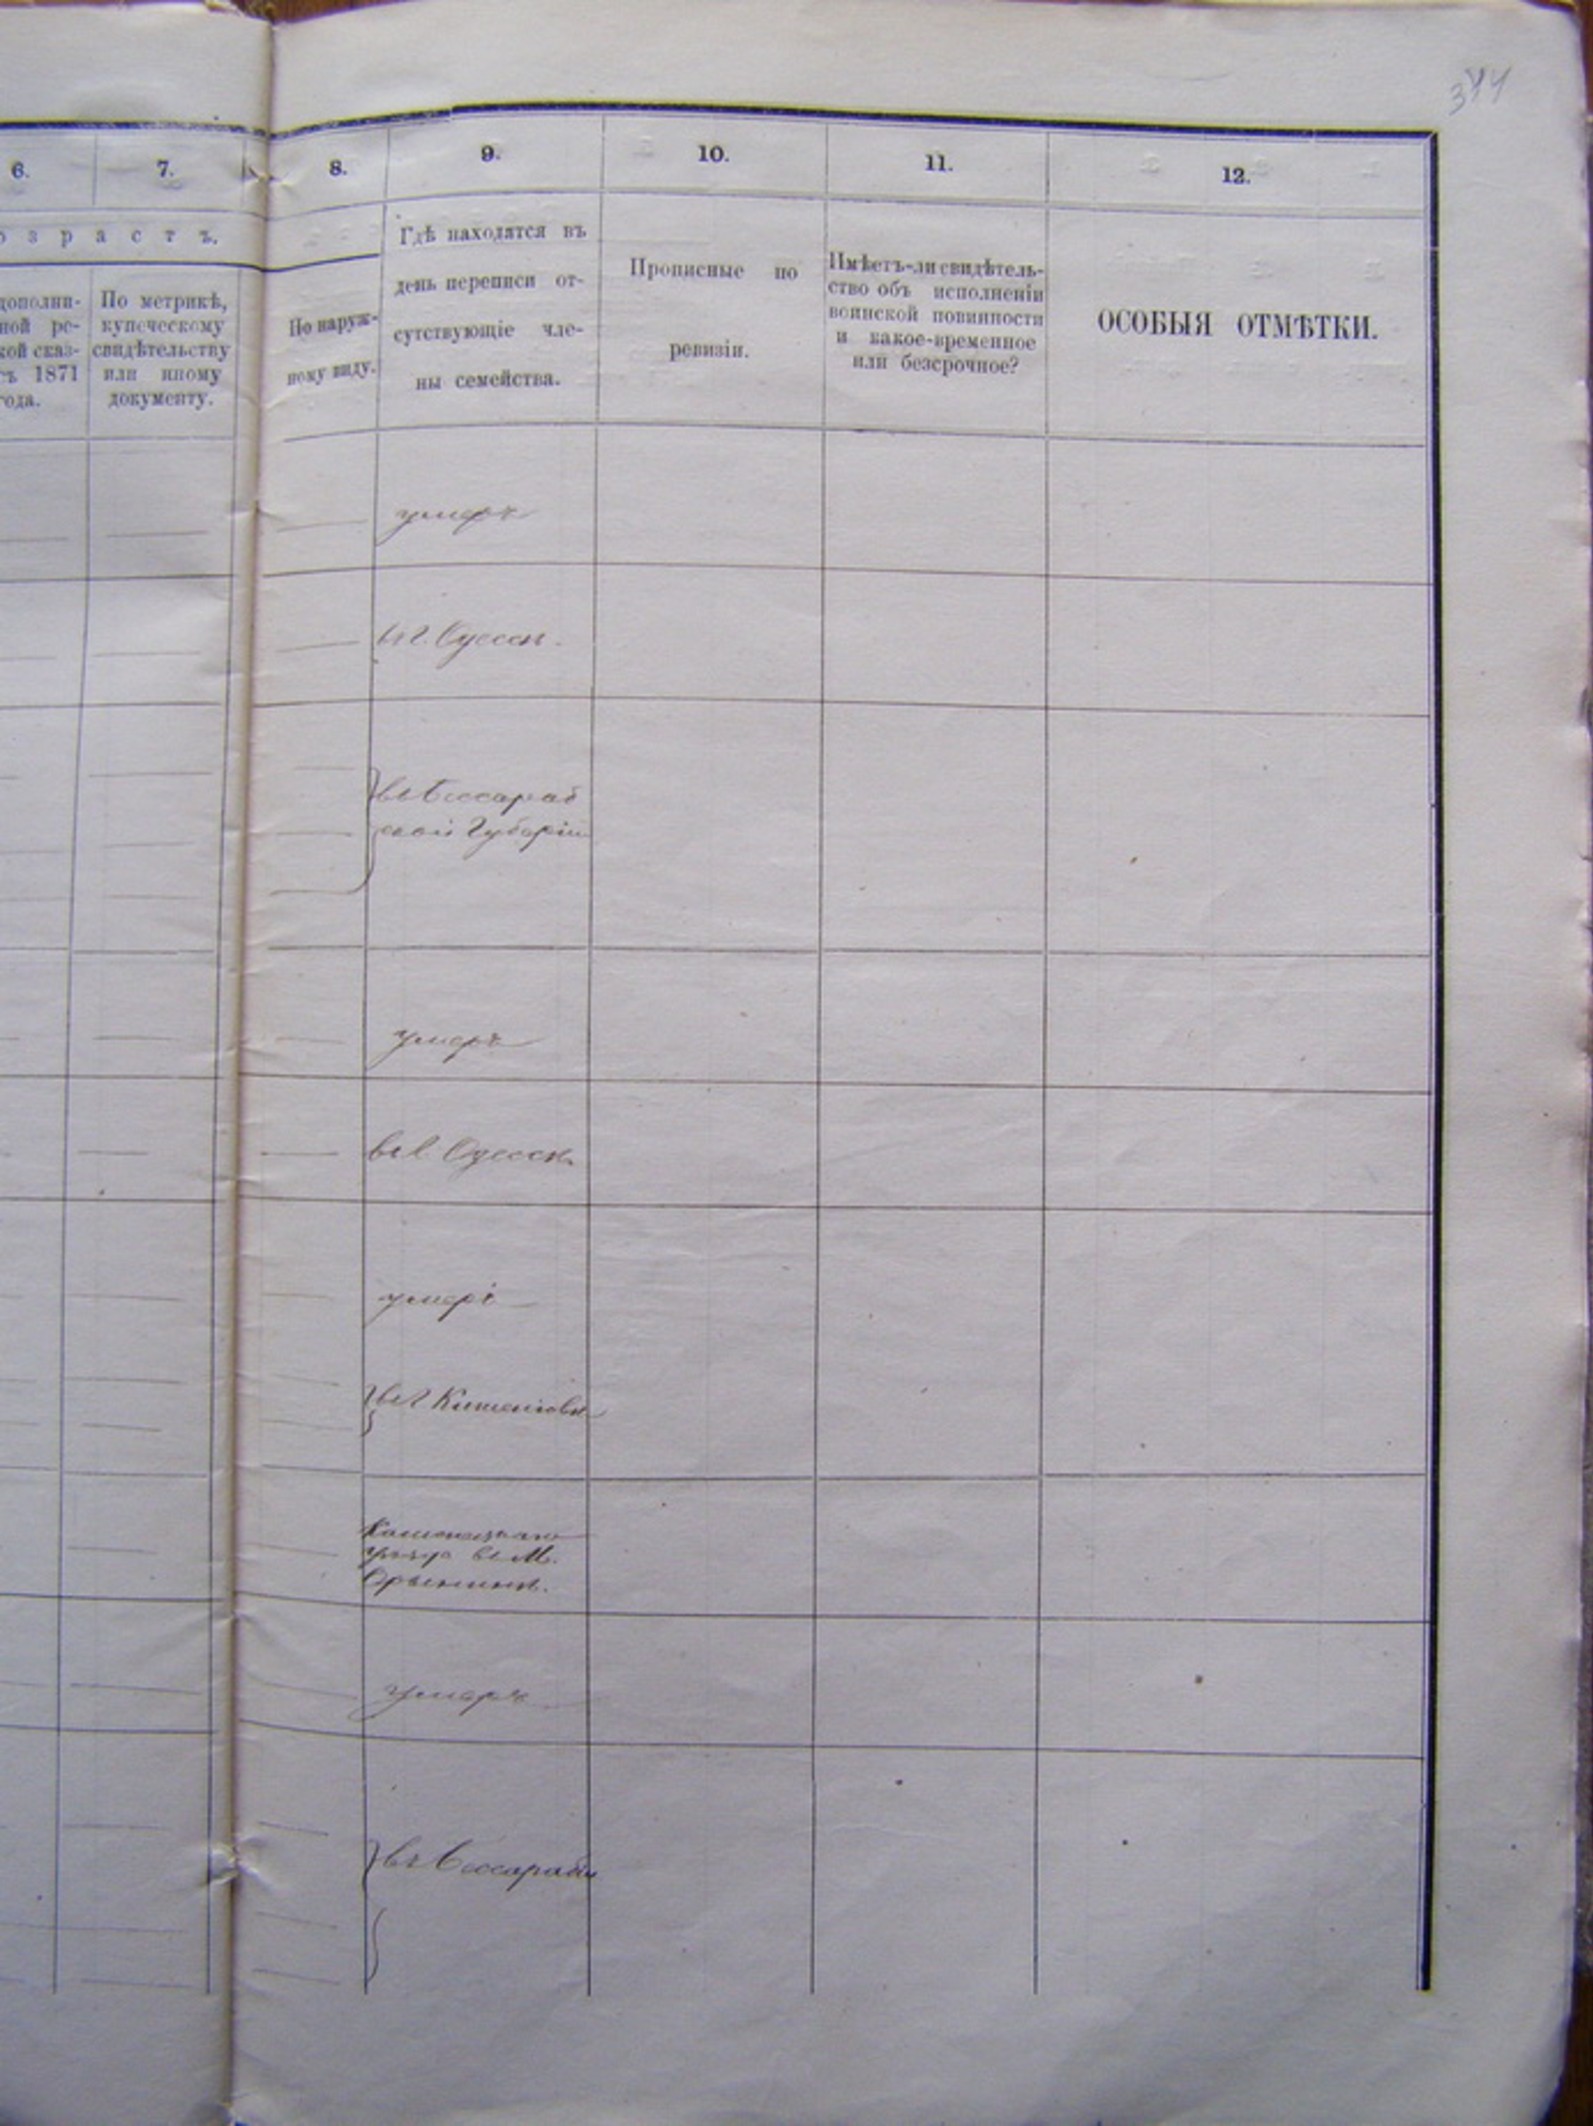 6. 7. 8. 9. 10. 11. 12.
о з р а с т ъ.
дополни-
ной ре-
кой сказ-
съ 1871
года.
По метрикѣ,
купеческому
свидѣтельству
или иному
документу.
По наруж-
ному виду.
Гдѣ находятся въ
день переписи от-
сутствующіе чле-
ны семейства.
Прописные по
ревизіи.
Имѣетъ-ли свидѣтель-
ство объ исполненіи
воинской повинности
и какое-временное
или безсрочное?
ОСОБЫЯ ОТМѢТКИ.
умеръ
въ г. Одессѣ.
въ Бессараб
ской Губерніи
умеръ
въ г. Одессѣ
умеръ
въ г Кишеневѣ
уѣзда въ М.
Орынинѣ.
умеръ
въ Бессарабіи